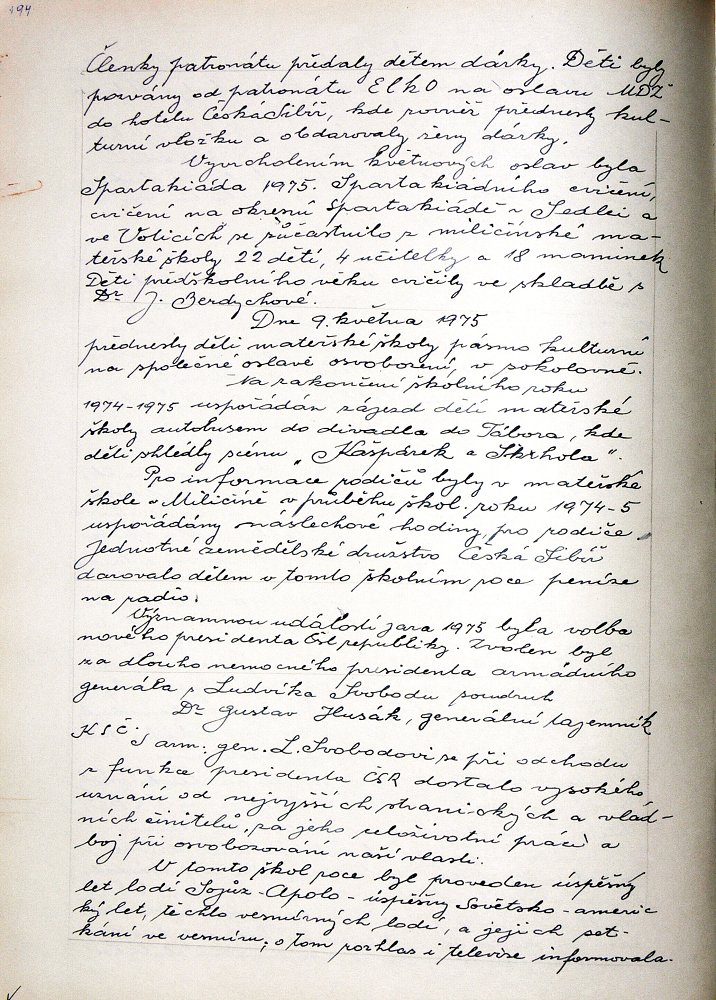 194
Členky patronátu předaly dětem dárky. Děti byly
pozvány od patronátu ELKO na oslavu MDŽ
do hotelu Česká Sibiř, kde rovněž přednesly kul-
turní vložku a obdarovaly ženy dárky.
Vyvrcholením květnových oslav byla
Spartakiáda 1975. Spartakiádního cvičení,
cvičení na okresní spartakiádě v Sedlci a
ve Voticích se zúčastnilo z miličínské ma-
teřské školy 22 dětí, 4 učitelky a 18 maminek
Děti předškolního věku cvičily ve skladbě s
Dr J. Berdychové.
Dne 9. května 1975
přednesly děti mateřské školy pásmo kulturní
na společné oslavě osvobození, v sokolovně.
Na zakončení školního roku
1974-1975 uspořádán zájezd dětí mateřské
školy autobusem do divadla do Tábora, kde
děti shlédly scénu „Kašpárek a Škrhola".
Pro informace rodičů byly v mateřské
škole v Miličíně v průběhu škol. roku 1974-5
uspořádány náslechové hodiny, pro rodiče.
Jednotné zemědělské družstvo Česká Sibiř
darovalo dětem v tomto školním roce peníze
na radio.
Významnou událostí jara 1975 byla volba
nového presidenta Čsl republiky. Zvolen byl
za dlouho nemocného presidenta armádního
generála s Ludvíka Svobodu soudruh
Dr Gustav Husák, generální tajemník
KSČ. S arm. gen. L. Svobodovi se při odchodu
z funkce presidenta ČSR dostalo vysokého
uznání od nejvyšších stranických a vlád-
ních činitelů, za jeho celoživotní práci a
boj při osvobozování naší vlasti.
V tomto škol roce byl proveden úspěšný
let lodí Sojůz-Apolo - úspěšný Sovětsko-americ
ký let, těchto vesmírných lodí, a jejich set-
kání ve vesmíru; o tom rozhlas i televize informovala.